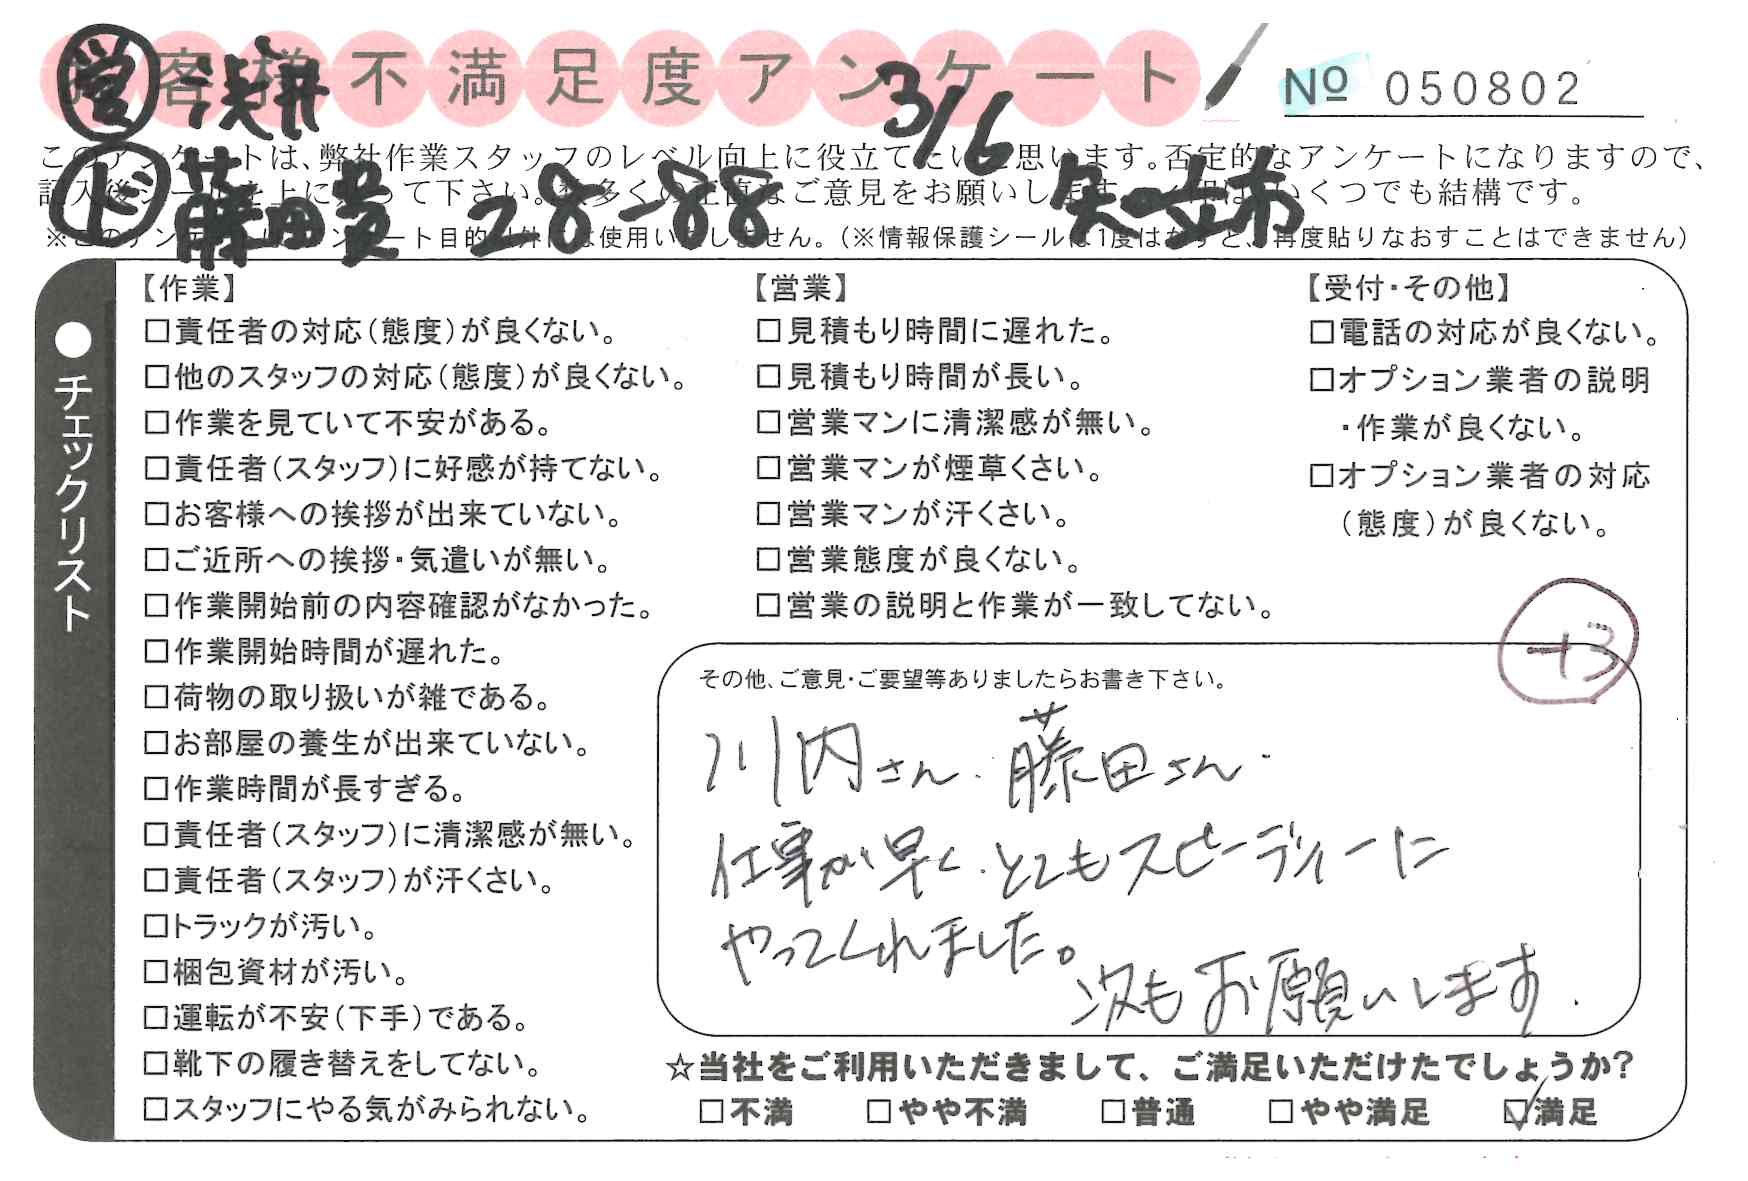 お客様不満足度アンケート
№ 050802
営 浅井
3/6
このアンケートは、弊社作業スタッフのレベル向上に役立てたいと思います。否定的なアンケートになりますので、
記入後シールを上に貼って下さい。数多くの正直なご意見をお願いします。
いくつでも結構です。
ド 藤田貴 28-88
立市
※このアンケートはアンケート目的以外には使用いたしません。(※情報保護シールは1度はがすと、再度貼りなおすことはできません)
●チェックリスト
【作業】
□責任者の対応(態度)が良くない。
□他のスタッフの対応(態度)が良くない。
□作業を見ていて不安がある。
□責任者(スタッフ)に好感が持てない。
□お客様への挨拶が出来ていない。
□ご近所への挨拶・気遣いが無い。
□作業開始前の内容確認がなかった。
□作業開始時間が遅れた。
□荷物の取り扱いが雑である。
□お部屋の養生が出来ていない。
□作業時間が長すぎる。
□責任者(スタッフ)に清潔感が無い。
□責任者(スタッフ)が汗くさい。
□トラックが汚い。
□梱包資材が汚い。
□運転が不安(下手)である。
□靴下の履き替えをしてない。
□スタッフにやる気がみられない。
【営業】
□見積もり時間に遅れた。
□見積もり時間が長い。
□営業マンに清潔感が無い。
□営業マンが煙草くさい。
□営業マンが汗くさい。
□営業態度が良くない。
□営業の説明と作業が一致してない。
【受付・その他】
□電話の対応が良くない。
□オプション業者の説明
・作業が良くない。
□オプション業者の対応
(態度)が良くない。
+3
その他、ご意見・ご要望等ありましたらお書き下さい。
川内さん・藤田さん・
仕事が早く、とてもスピーディーに
やってくれました。
次もお願いします.
☆当社をご利用いただきまして、ご満足いただけたでしょうか?
□不満 □やや不満 □普通 □やや満足 ☑満足